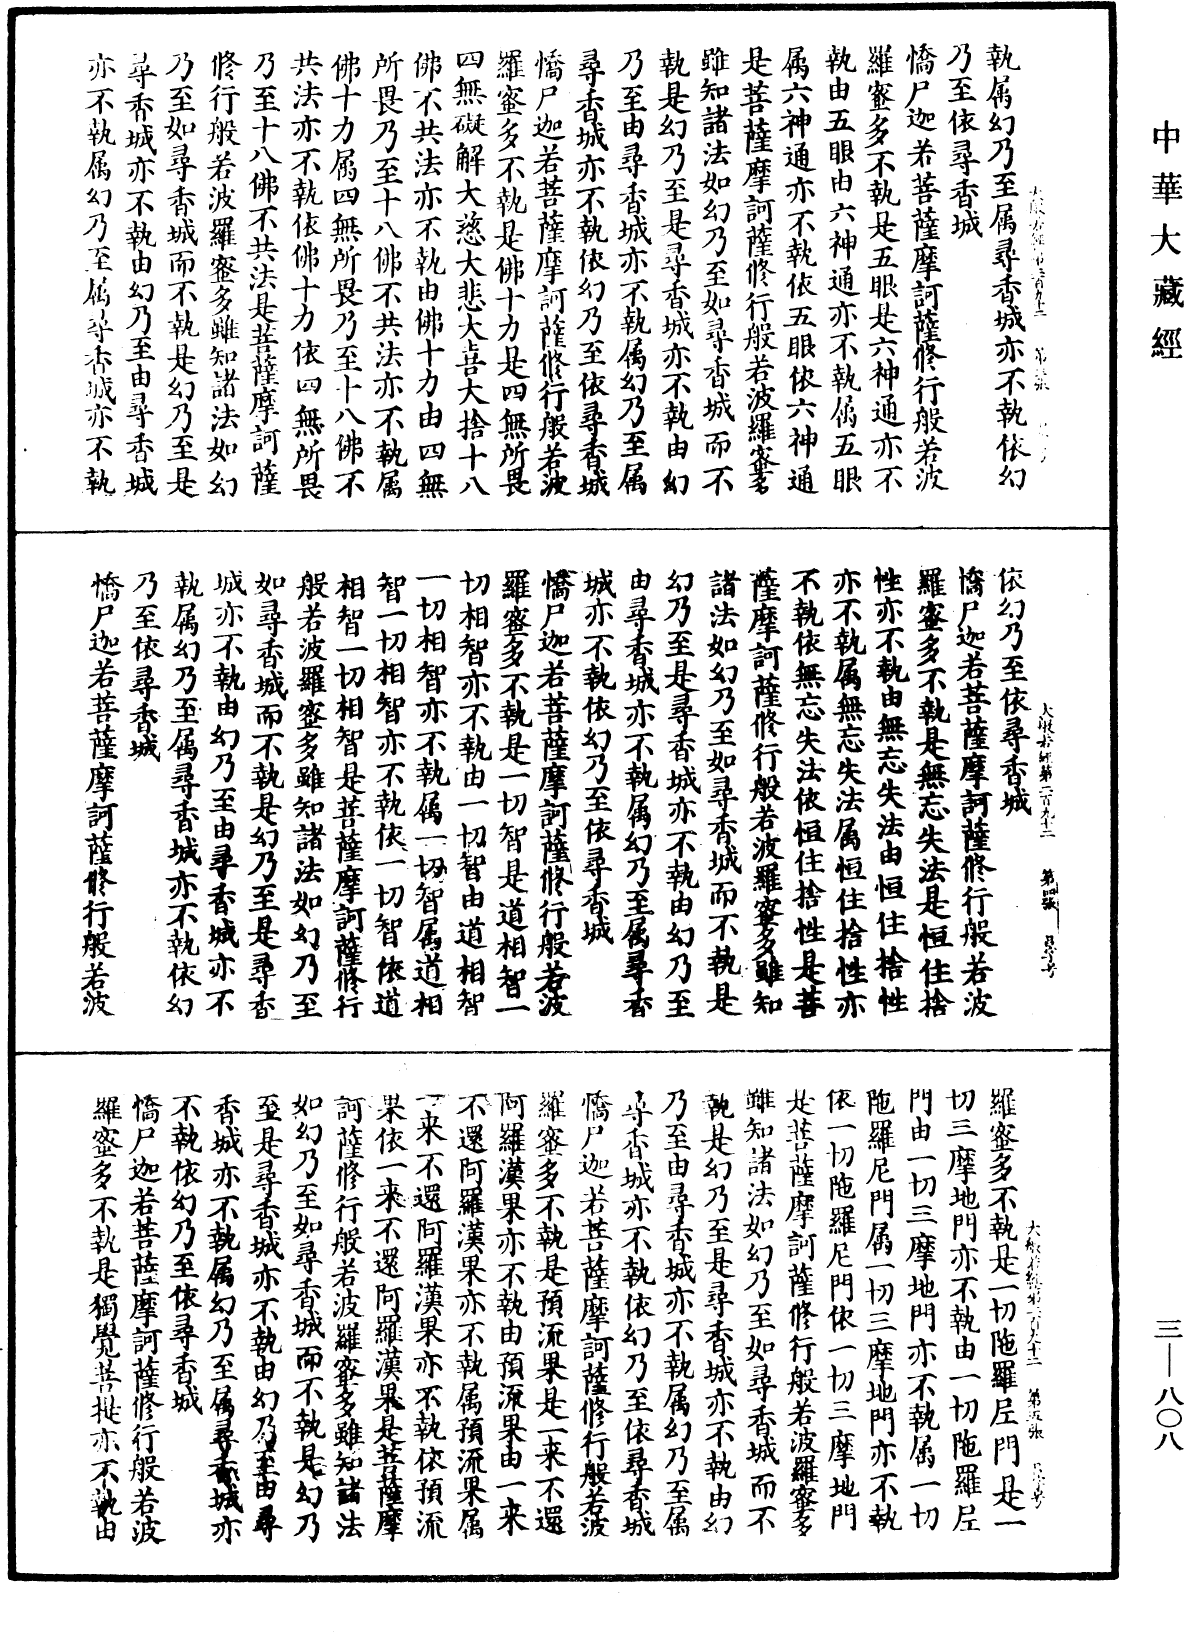 中華大藏經
執属幻乃至属尋香城亦不執依幻
乃至依尋香城
憍尸迦若菩薩摩訶薩修行般若波
羅蜜多不執是五眼是六神通亦不
執由五眼由六神通亦不執属五眼
属六神通亦不執依五眼依六神通
是菩薩摩訶薩修行般若波羅蜜多
雖知諸法如幻乃至如尋香城而不
執是幻乃至是尋香城亦不執由幻
乃至由尋香城亦不執属幻乃至属
尋香城亦不執依幻乃至依尋香城
憍尸迦若菩薩摩訶薩修行般若波
羅蜜多不執是佛十力是四無所畏
四無礙解大慈大悲大喜大捨十八
佛不共法亦不執由佛十力由四無
所畏乃至十八佛不共法亦不執属
佛十力属四無所畏乃至十八佛不
共法亦不執依佛十力依四無所畏
乃至十八佛不共法是菩薩摩訶薩
修行般若波羅蜜多雖知諸法如幻
乃至如尋香城而不執是幻乃至是
尋香城亦不執由幻乃至由尋香城
亦不執属幻乃至属尋香城亦不執
大般若經第二百九十二 第四張
依幻乃至依尋香城
憍尸迦若菩薩摩訶薩修行般若波
羅蜜多不執是無忘失法是恒住捨
性亦不執由無忘失法由恒住捨性
亦不執属無忘失法属恒住捨性亦
不執依無忘失法依恒住捨性是菩
薩摩訶薩修行般若波羅蜜多雖知
諸法如幻乃至如尋香城而不執是
幻乃至是尋香城亦不執由幻乃至
由尋香城亦不執属幻乃至属尋香
城亦不執依幻乃至依尋香城
憍尸迦若菩薩摩訶薩修行般若波
羅蜜多不執是一切智是道相智一
切相智亦不執由一切智由道相智
一切相智亦不執属一切智属道相
智一切相智亦不執依一切智依道
相智一切相智是菩薩摩訶薩修行
般若波羅蜜多雖知諸法如幻乃至
如尋香城而不執是幻乃至是尋香
城亦不執由幻乃至由尋香城亦不
執属幻乃至属尋香城亦不執依幻
乃至依尋香城
憍尸迦若菩薩摩訶薩修行般若波
大般若經第二百九十二 第五張
羅蜜多不執是一切陁羅尼門是一
切三摩地門亦不執由一切陁羅尼
門由一切三摩地門亦不執属一切
陁羅尼門属一切三摩地門亦不執
依一切陁羅尼門依一切三摩地門
是菩薩摩訶薩修行般若波羅蜜多
雖知諸法如幻乃至如尋香城而不
執是幻乃至是尋香城亦不執由幻
乃至由尋香城亦不執属幻乃至属
尋香城亦不執依幻乃至依尋香城
憍尸迦若菩薩摩訶薩修行般若波
羅蜜多不執是預流果是一来不還
阿羅漢果亦不執由預流果由一来
不還阿羅漢果亦不執属預流果属
一来不還阿羅漢果亦不執依預流
果依一来不還阿羅漢果是菩薩摩
訶薩修行般若波羅蜜多雖知諸法
如幻乃至如尋香城而不執是幻乃
至是尋香城亦不執由幻乃至由尋
香城亦不執属幻乃至属尋香城亦
不執依幻乃至依尋香城
憍尸迦若菩薩摩訶薩修行般若波
羅蜜多不執是獨覺菩提亦不執由
三—八〇八